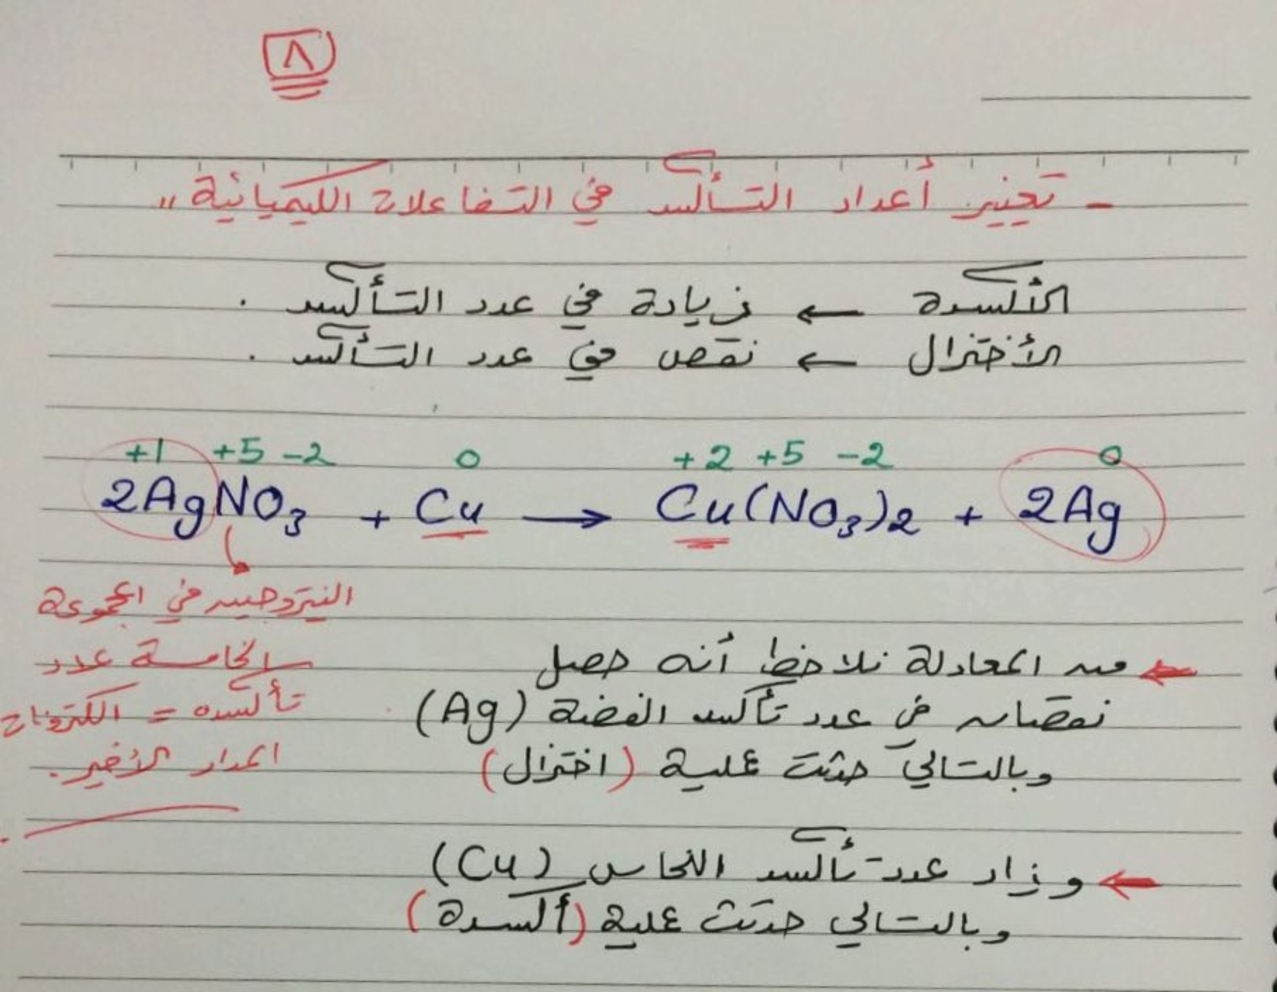 ٨
- تغيير أعداد التأكسد في التفاعلات الكيميائية "
الأكسدة ← زيادة في عدد التأكسد .
الأختزال ← نقص في عدد التأكسد .
+1 +5 -2 0 +2 +5 -2 0
2AgNO3 + Cu → Cu(NO3)2 + 2Ag
النيتروجين في المجموعة
الخامسة عدد
تأكسده = الكترونات
المدار الأخير .
← من المعادلة نلاحظ أنه حصل
نقصان في عدد تأكسد الفضة (Ag)
وبالتالي حدثت عملية (اختزال)
← وزاد عدد تأكسد النحاس (Cu)
وبالتالي حدثت عملية (أكسدة)